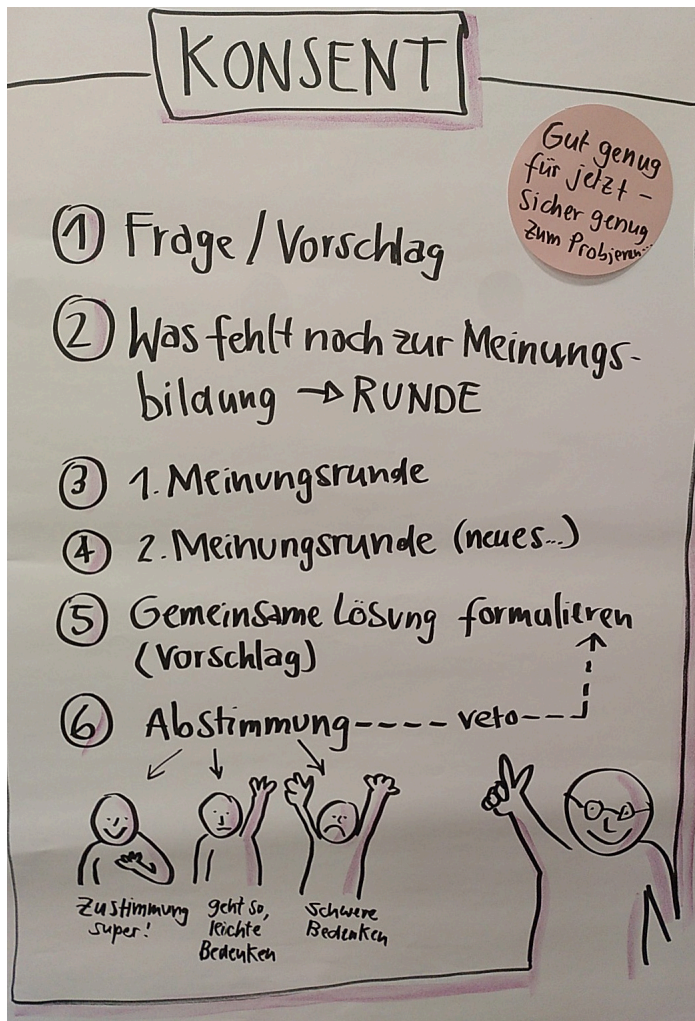 KONSENT
Gut genug
für jetzt -
sicher genug
zum Probieren...
① Frage / Vorschlag
② Was fehlt noch zur Meinungs-
bildung → RUNDE
③ 1. Meinungsrunde
④ 2. Meinungsrunde (neues...)
⑤ Gemeinsame Lösung formulieren
(Vorschlag)
⑥ Abstimmung ---- veto ---
Zustimmung
super!
geht so,
leichte
Bedenken
Schwere
Bedenken